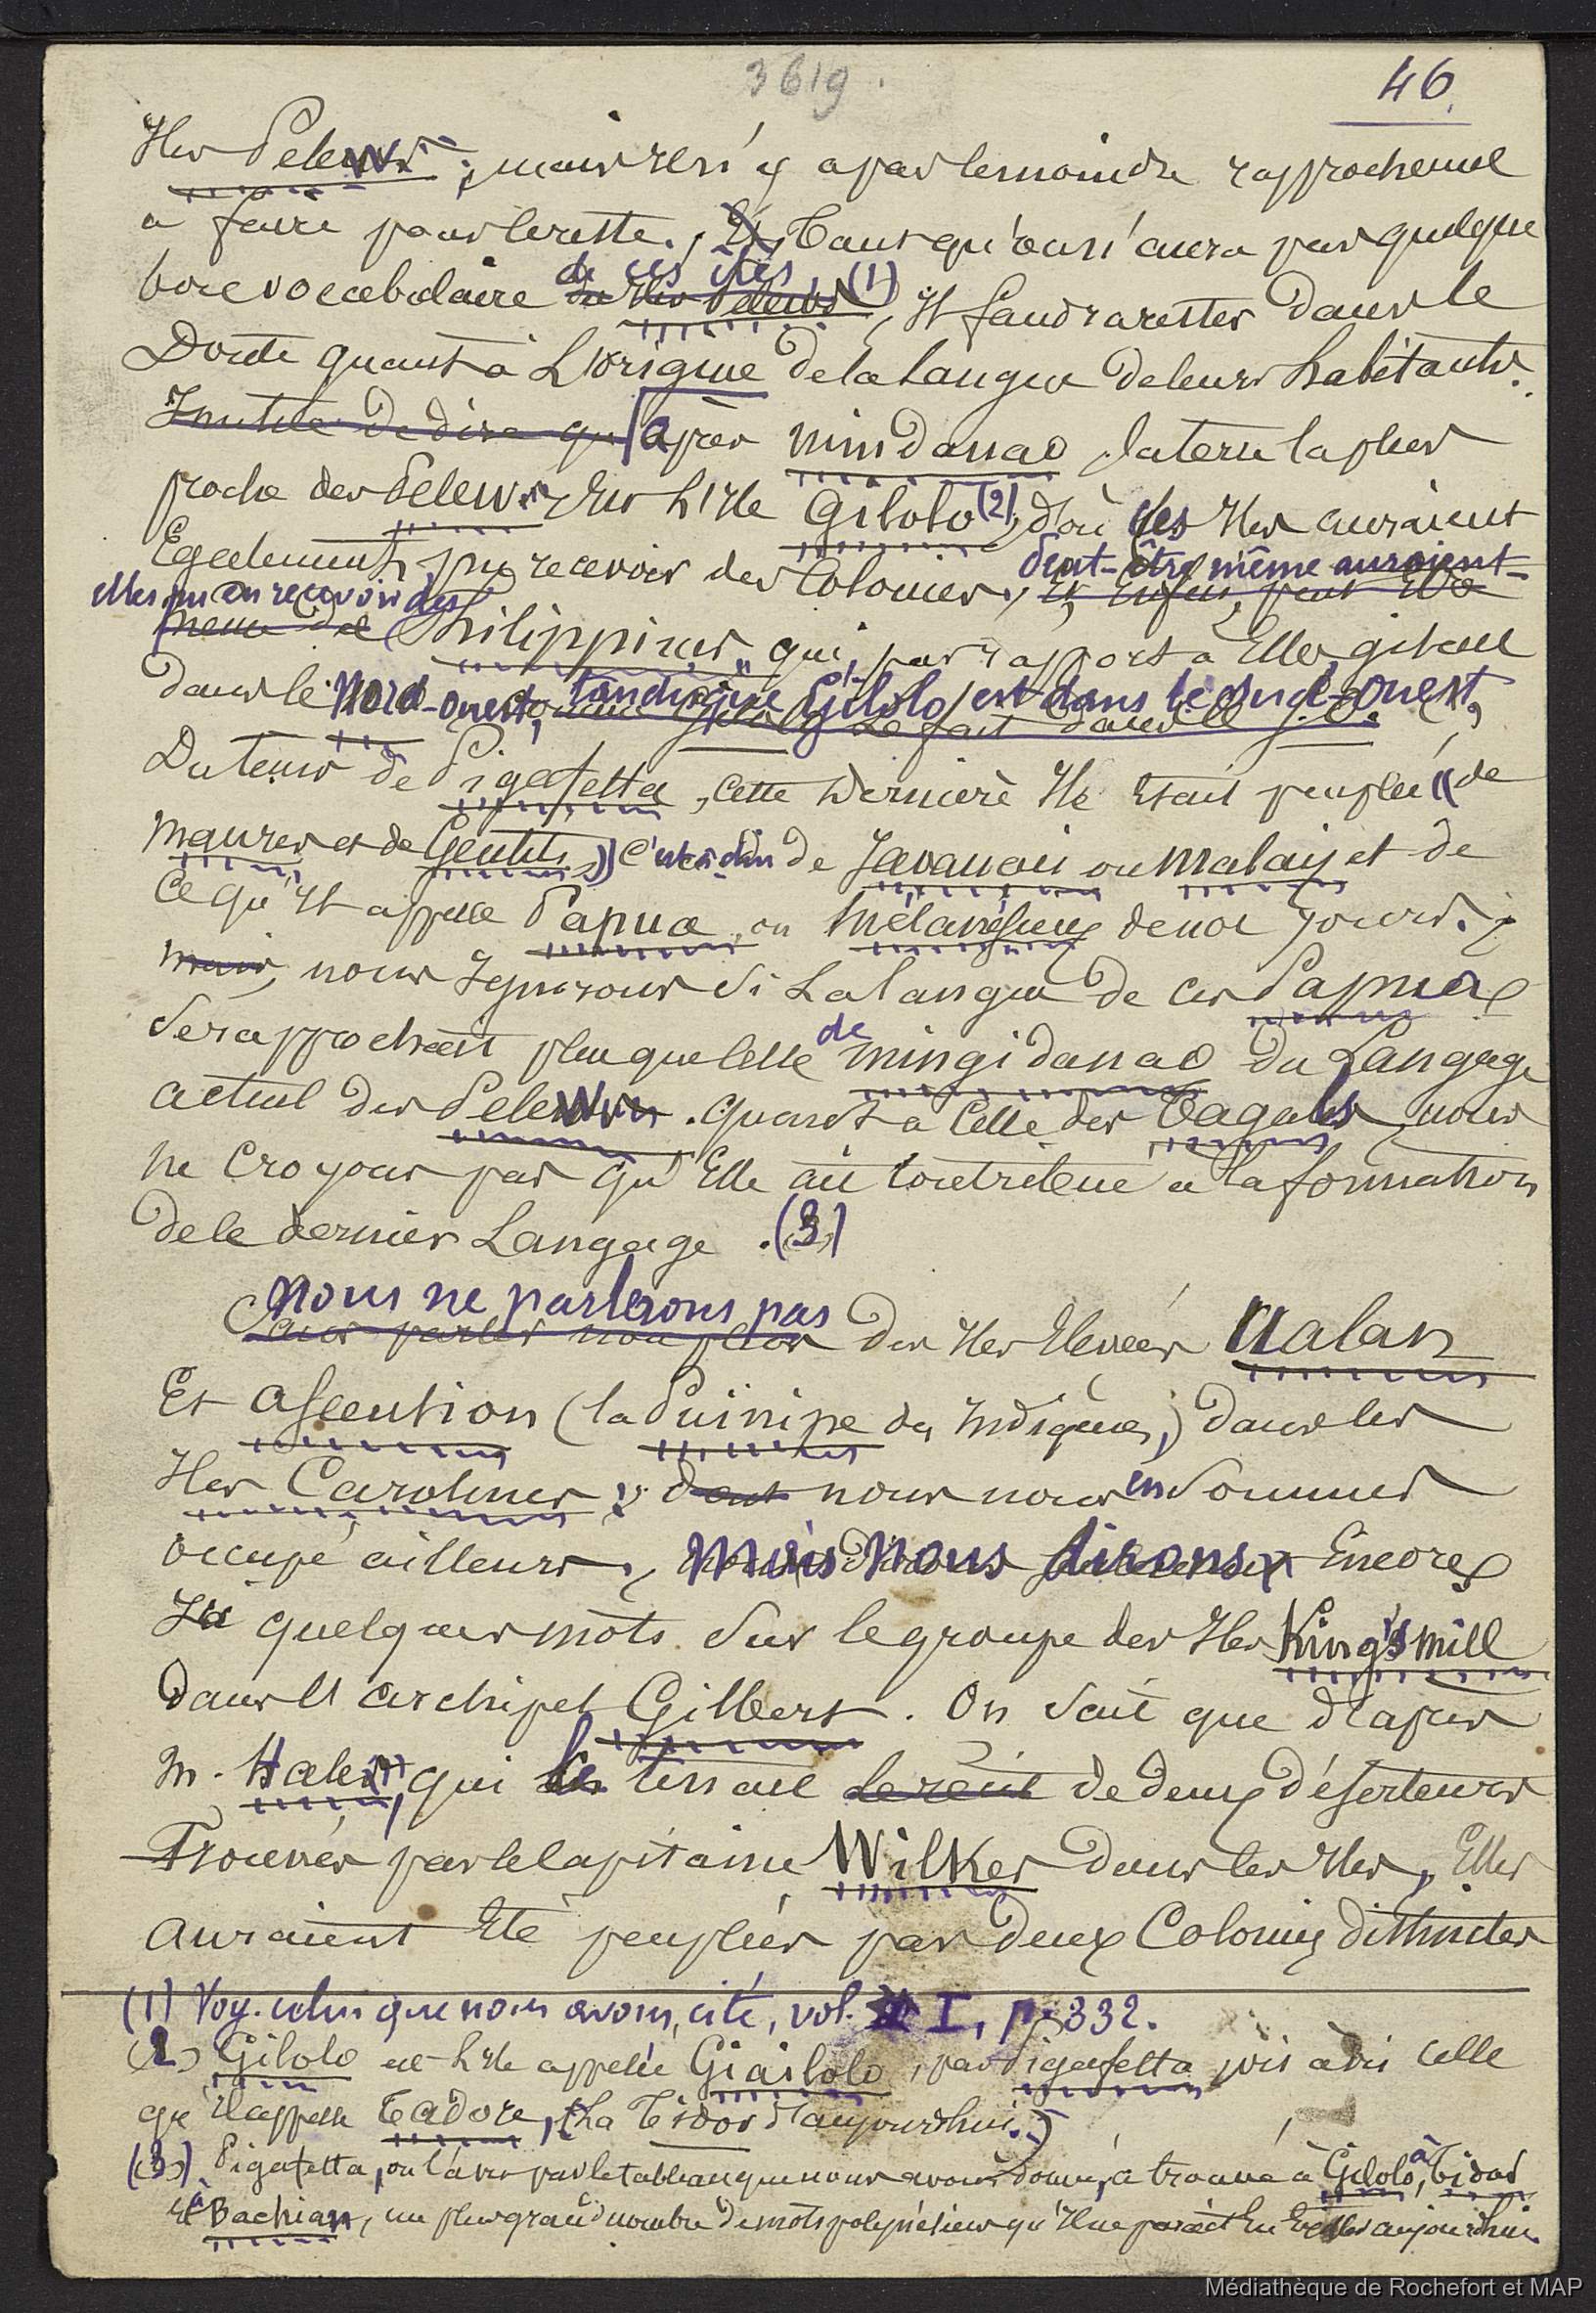 3619.
46.
Iles Pelew ; mais il n'y a pas le moindre rapprochement
à faire pour le reste. Tant qu'on n'aura pas quelque
bon vocabulaire de ces îles (1), Il faudra rester dans le
Doute quant à L'origine de la langue de leurs habitants.
Inutile de dire qu' après mindanao la terre la plus
proche des Pelew est l'Ile Gilolo (2), d'où ces Iles auraient
Egalement pu recevoir des Colonies. Peut-être même auraient-
elles pu en recevoir des Philippines, qui, par rapport à Elles, gisent
dans le Nord-ouest, tandis que Gilolo est dans le sud-ouest,
Du tems de Pigafetta, cette dernière Ile était peuplée "de
maures et de Gentils", c'est-à-dire de Javanais ou malais et de
ce qu'Il appelle Papua, ou mélanésiens de nos jours.
mais, nous Ignorons si La langue de ces Papua
se rapprochait plus que celle de mingidanao du Langage
actuel des Pelew. quant à celle des Tagals, nous
ne croyons pas qu'Elle ait contribué à la formation
de ce dernier Langage. (3)
nous ne parlerons pas des Iles Elevées Ualan
Et Ascention (la Puinipe des Indigènes,) dans les
Iles Carolines ; dont nous nous en sommes
occupé ailleurs, mais nous dirons Encore
Ici quelques mots sur le groupe des Iles King's mill
dans l'archipel Gilbert. On sait que d'après
M. Hale (1), qui les tenait le récit de deux déserteurs
Trouvés par le Capitaine Wilkes dans les Iles, Elles
auraient Eté peuplées par deux Colonies distinctes
(1) Voy. celui que nous avons cité, vol. I, p. 332.
(2) Gilolo est l'Ile appelée Giailolo, par Pigafetta, vis à vis celle
qu'Il appelle Tadore, (La Tidor d'aujourdhui.)
(3) Pigafetta, on l'a vu par le tableau que nous avons donné, a trouvé à Gilolo, à Tidor
Et à Bachian, un plus grand nombre de mots polynésiens qu'Il ne paraît En Exister aujourdhui.
Médiathèque de Rochefort et MAP